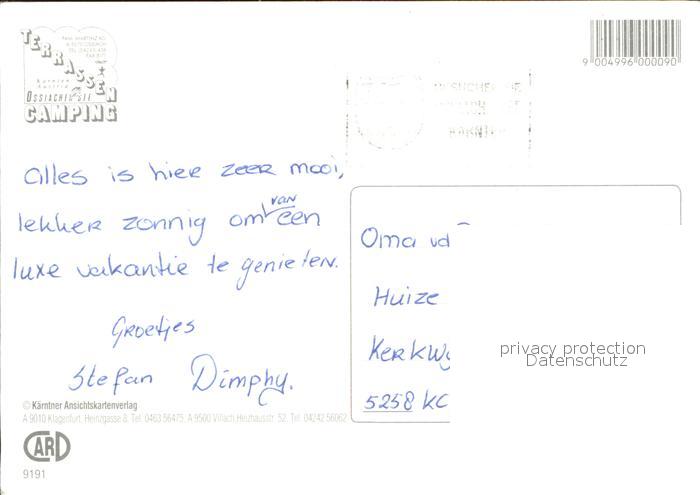 TERRASSEN
Kärnten
Austria
OSSIACHER SEE
CAMPING
9 004996 000090
KÄRNTEN
alles is hier zeer mooi,
lekker zonnig om van een
luxe vakantie te genieten.
Groetjes
Stefan Dimphy.
Oma vd
Huize
Kerkw
5258 KC
privacy protection
Datenschutz
© Kärntner Ansichtskartenverlag
A 9010 Klagenfurt, Heinzgasse 8, Tel. 0463 56475, A 9500 Villach, Heizhausstr. 52, Tel. 04242 56062
CARD
9191